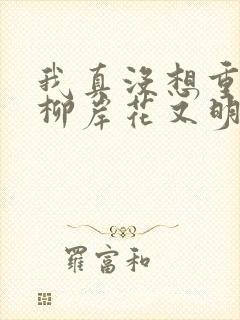 我真没想重
柳岸花又明
羅富和